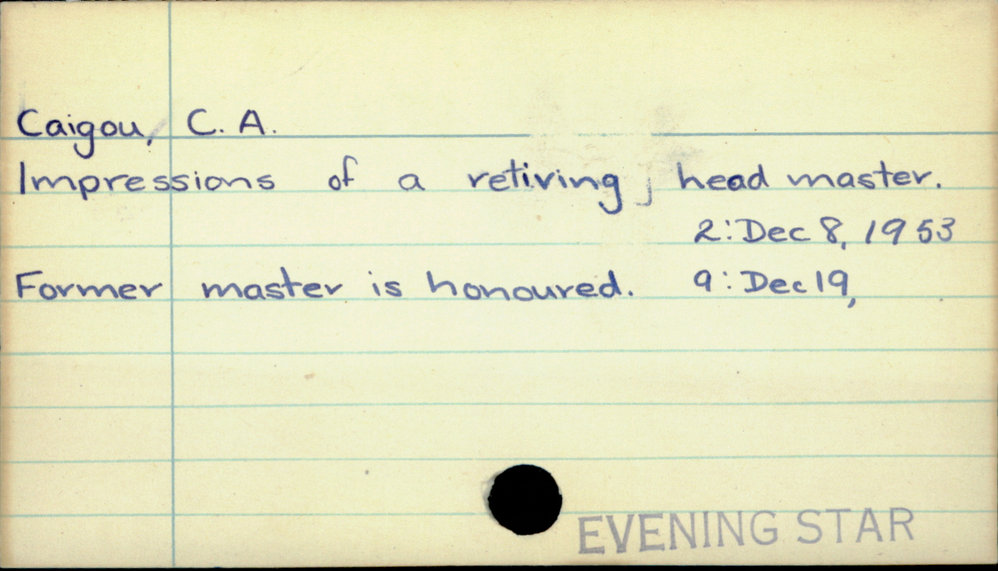 Caigou, C. A.
Impressions of a retiring head master.
2: Dec 8, 1953
Former master is honoured. 9: Dec 19,
EVENING STAR